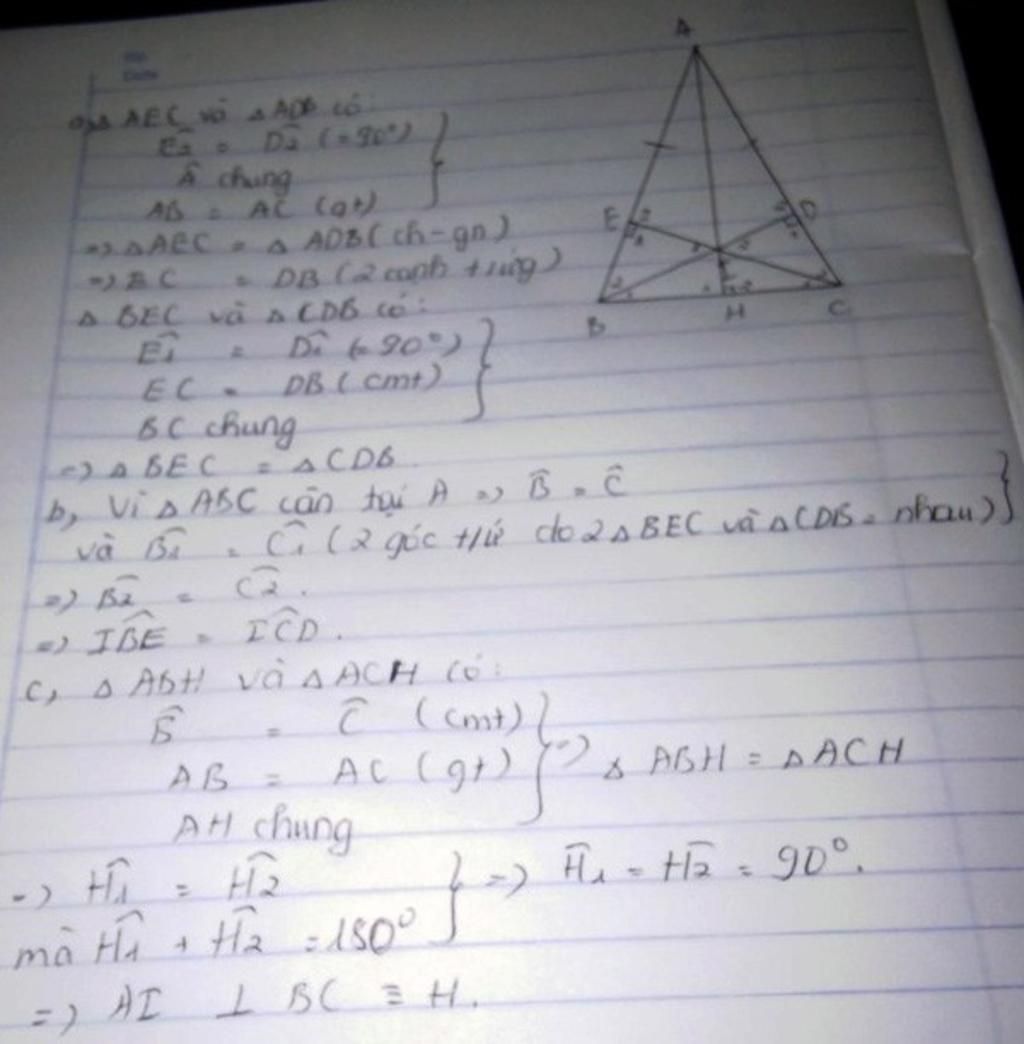 a, △ AEC và △ ADB có:
Ê2 = D̂2 (= 90°)
Â chung
AB = AC (gt)
=> △ AEC = △ ADB (ch - gn)
=> EC = DB (2 cạnh t/ứng)
△ BEC và △ CDB có:
Ê1 = D̂1 (= 90°)
EC = DB (cmt)
BC chung
=> △ BEC = △ CDB
b, Vì △ ABC cân tại A => B̂ = Ĉ
và B̂1 = Ĉ1 (2 góc t/ứ do 2 △ BEC và △ CDB = nhau)
=> B̂2 = Ĉ2.
=> IB̂E = IĈD.
c, △ ABH và △ ACH có:
B̂ = Ĉ (cmt)
AB = AC (gt) => △ ABH = △ ACH
AH chung
=> Ĥ1 = Ĥ2 => Ĥ1 = Ĥ2 = 90°.
mà Ĥ1 + Ĥ2 = 180°
=> AI ⊥ BC ≡ H.
A
E
D
B
H
C